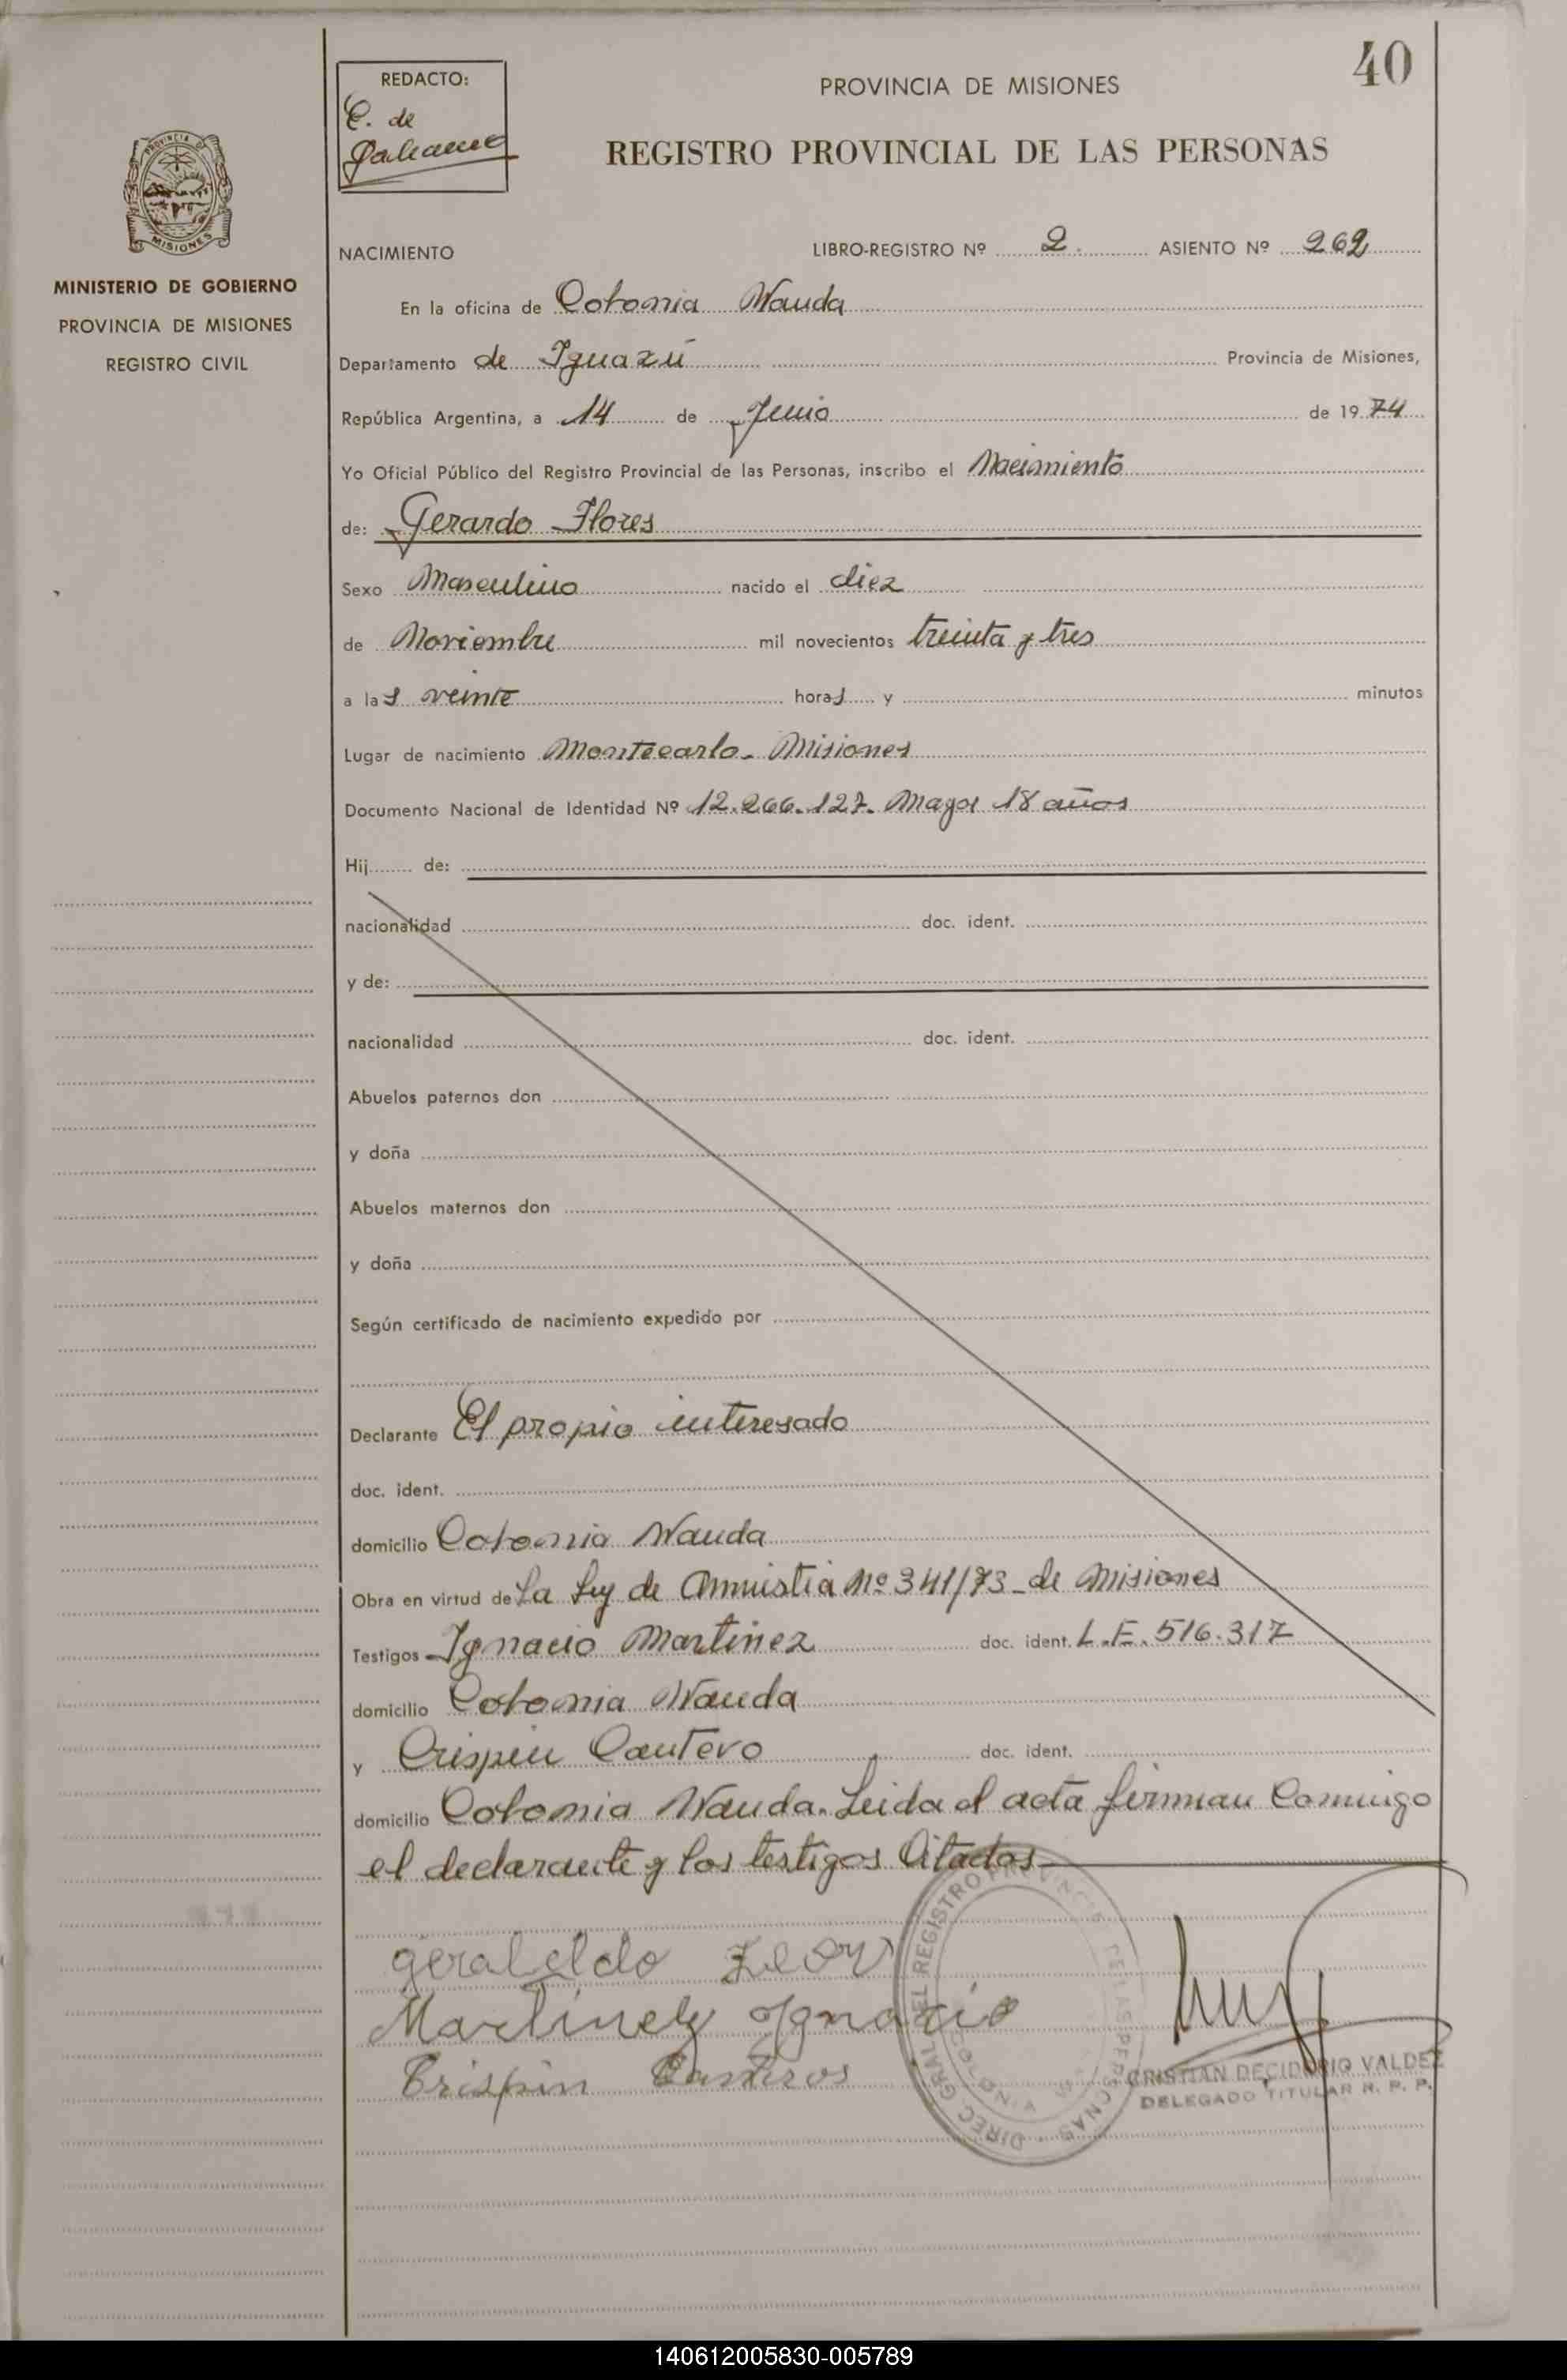 40
REDACTO:
C. de
PROVINCIA DE MISIONES
REGISTRO PROVINCIAL DE LAS PERSONAS
PROVINCIA DE
MISIONES
MINISTERIO DE GOBIERNO
PROVINCIA DE MISIONES
REGISTRO CIVIL
NACIMIENTO LIBRO-REGISTRO Nº 2. ASIENTO Nº 262
En la oficina de Colonia Wanda
Departamento de Iguazú Provincia de Misiones,
República Argentina, a 14 de Junio de 1974
Yo Oficial Público del Registro Provincial de las Personas, inscribo el Nacimiento
de: Gerardo Flores
Sexo Masculino nacido el diez
de Noviembre mil novecientos treinta y tres
a las veinte horas y minutos
Lugar de nacimiento Montecarlo - Misiones
Documento Nacional de Identidad Nº 12.266.127. Mayor 18 años
Hij de:
nacionalidad doc. ident.
y de:
nacionalidad doc. ident.
Abuelos paternos don
y doña
Abuelos maternos don
y doña
Según certificado de nacimiento expedido por
Declarante El propio interesado
doc. ident.
domicilio Colonia Wanda
Obra en virtud de La Ley de Amnistia Nº 341/73 - de Misiones
Testigos - Ignacio Martinez doc. ident. L.E. 516.317
domicilio Colonia Wanda
y Crispin Cantero doc. ident.
domicilio Colonia Wanda. Leida el acta firman Commigo
el declarante y los testigos Citados
geraldo
Martinez Ignacio
Crispin Canteros
DIREC. GRAL DEL REGISTRO PROVINCIAL DE LAS PERSONAS
CRISTIAN DECIDORIO VALDEZ
DELEGADO TITULAR R. P. P.
140612005830-005789